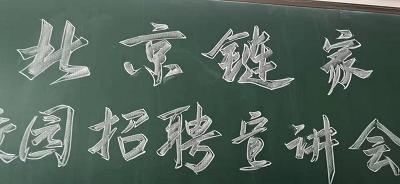 北京链家
校园招聘宣讲会